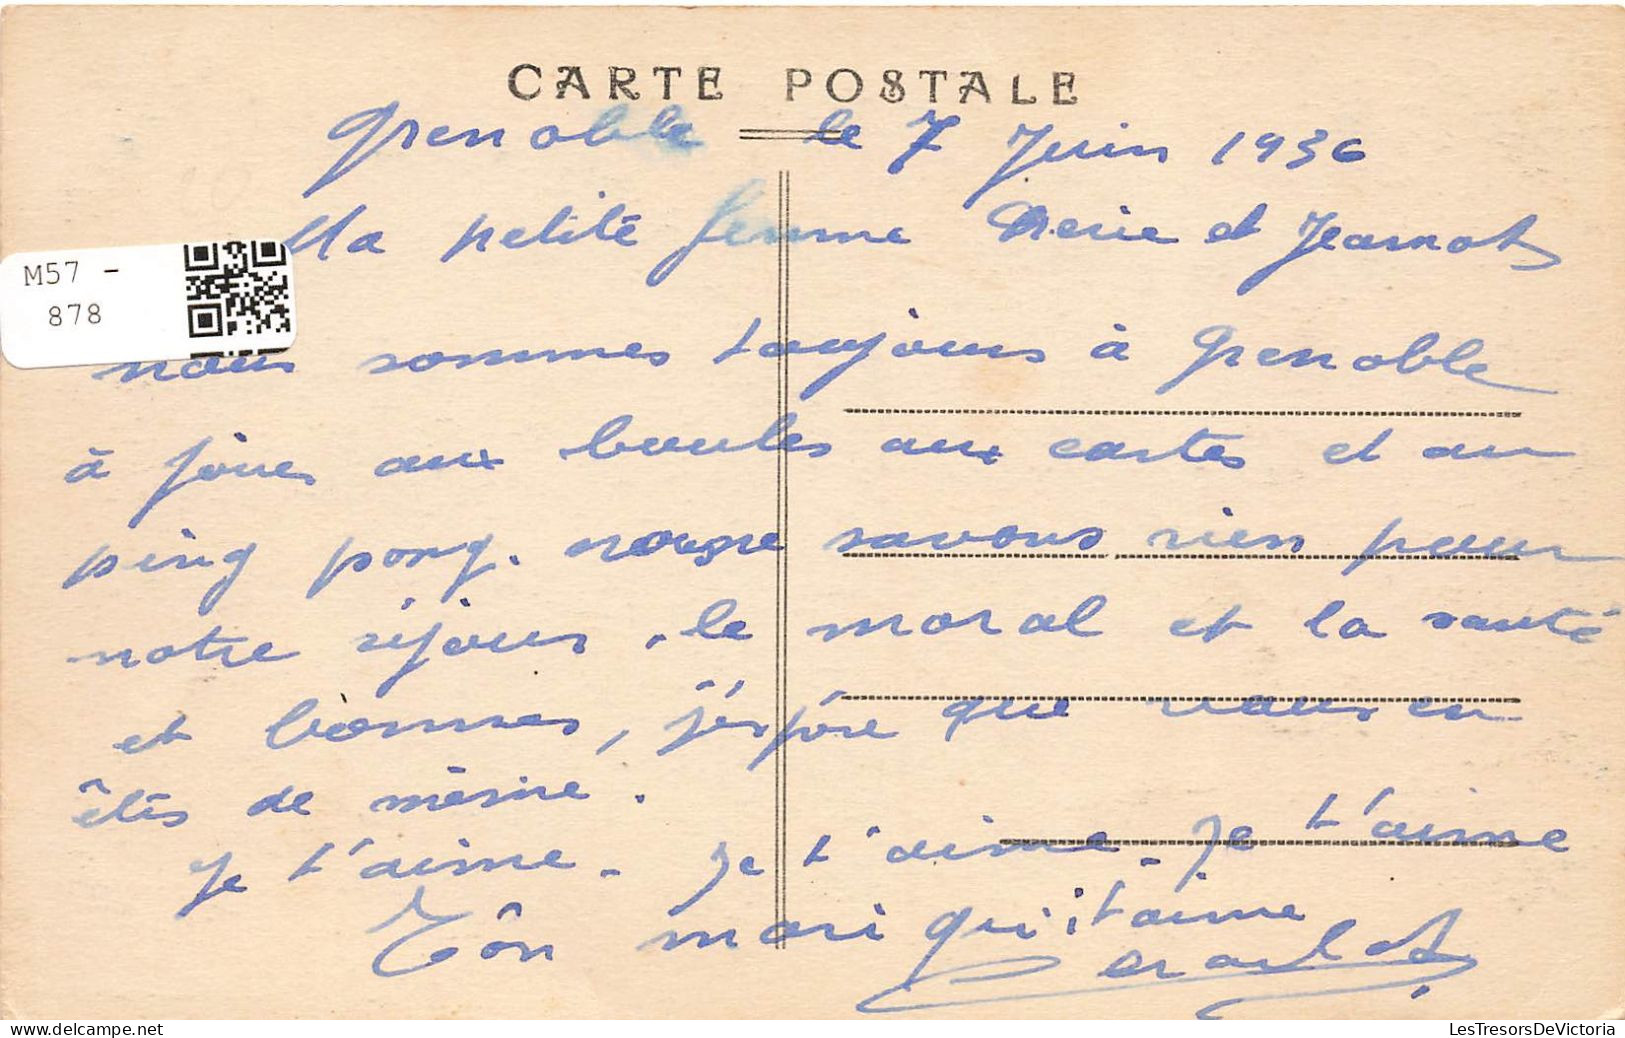 CARTE POSTALE
Grenoble le 7 Juin 1936
Ma petite femme Cherie et Jeannot
M57 -
878
nous sommes toujours à Grenoble
à jouer aux boules aux cartes et au
ping pong. nous ne savons rien pour
notre séjour. le moral et la santé
et bonnes, j'éspére que vous en
êtes de même.
Je t'aime. Je t'aime. Je t'aime
Ton mari qui t'aime
LesTresorsDeVictoria